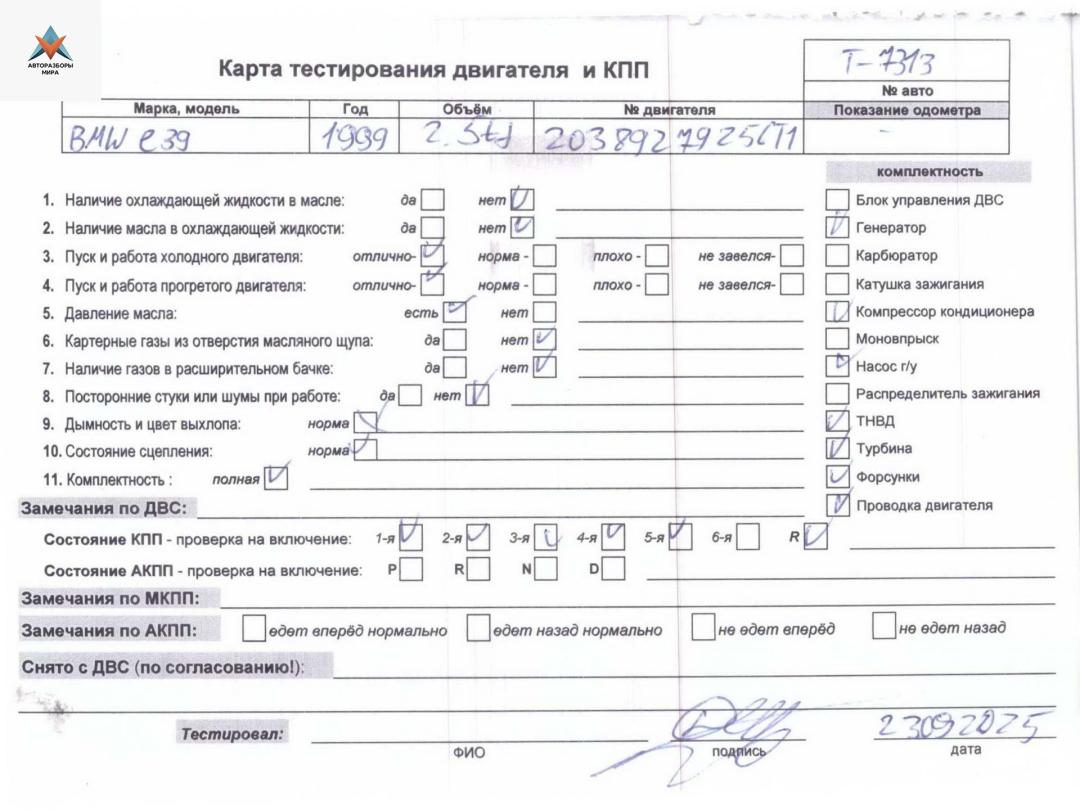 АВТОРАЗБОРЫ
МИРА
Карта тестирования двигателя и КПП
T-7313
№ авто
Марка, модель Год Объём № двигателя Показание одометра
BMW e39 1999 2.5td 20389279256T1 -
комплектность
1. Наличие охлаждающей жидкости в масле: да нет
Блок управления ДВС
2. Наличие масла в охлаждающей жидкости: да нет
Генератор
3. Пуск и работа холодного двигателя: отлично- норма - плохо - не завелся-
Карбюратор
4. Пуск и работа прогретого двигателя: отлично- норма - плохо - не завелся-
Катушка зажигания
5. Давление масла: есть нет
Компрессор кондиционера
6. Картерные газы из отверстия масляного щупа: да нет
Моновпрыск
7. Наличие газов в расширительном бачке: да нет
Насос г/у
8. Посторонние стуки или шумы при работе: да нет
Распределитель зажигания
9. Дымность и цвет выхлопа: норма
ТНВД
10. Состояние сцепления: норма
Турбина
11. Комплектность : полная
Форсунки
Замечания по ДВС:
Проводка двигателя
Состояние КПП - проверка на включение: 1-я 2-я 3-я 4-я 5-я 6-я R
Состояние АКПП - проверка на включение: P R N D
Замечания по МКПП:
Замечания по АКПП: едет вперёд нормально едет назад нормально не едет вперёд не едет назад
Снято с ДВС (по согласованию!):
Тестировал: 23092025
ФИО подпись дата